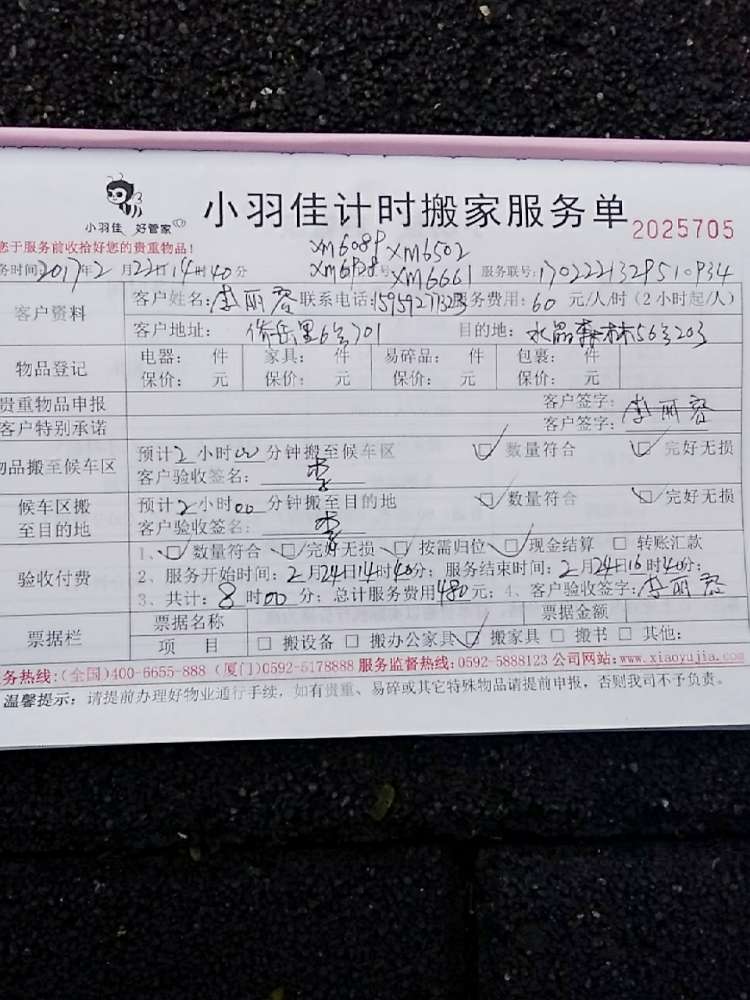 小羽佳 好管家
小羽佳计时搬家服务单
2025705
您于服务前收拾好您的贵重物品!
XM6089 XM6502
务时间2017年2月22日14时40分 XM6928号 XM6661 服务联号:1702221329510934
客户资料
客户姓名:李丽蓉 联系电话:服务费用:60 元/人/时(2小时起/人)
客户地址: 侨岳里6号701 目的地: 水晶森林56号203
物品登记
电器: 件 家具: 件 易碎品: 件 包裹: 件
保价: 元 保价: 元 保价: 元 保价: 元
贵重物品申报 客户签字:
李丽蓉
客户特别承诺 客户签字:
物品搬至候车区
预计2小时00分钟搬至候车区 数量符合 完好无损
客户验收签名: 李
候车区搬
至目的地
预计2小时00分钟搬至目的地 数量符合 完好无损
客户验收签名: 李
验收付费
1、数量符合 完好无损 按需归位 现金结算 转账汇款
2、服务开始时间:2月24日14时40分; 服务结束时间:2月24日16时40分;
3、共计:8时00分; 总计服务费用480元; 4、客户验收签字:李丽蓉
票据栏
票据名称 票据金额
项 目 搬设备 搬办公家具 搬家具 搬书 其他:
务热线:(全国)400-6655-888 (厦门)0592-5178888 服务监督热线:0592-5888123 公司网站:www.xiaoyujia.com
温馨提示: 请提前办理好物业通行手续,如有贵重、易碎或其它特殊物品请提前申报,否则我司不予负责。